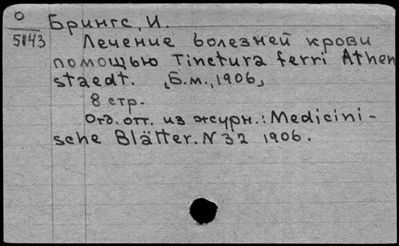 О
5143
Брингс, И.
Лечение болезней крови
помощью Tinctura ferri Athen
staedt. [Б.м., 1906]
8 стр.
Отд. отт. из журн.: Medicini-
sche Blätter. N 32 1906.